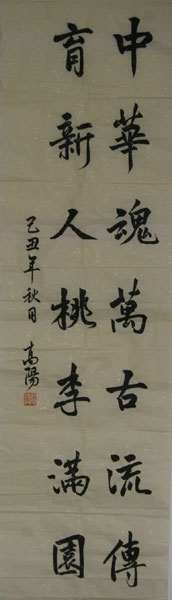 中華魂萬古流傳
育新人桃李滿園
己丑年秋月
高陽